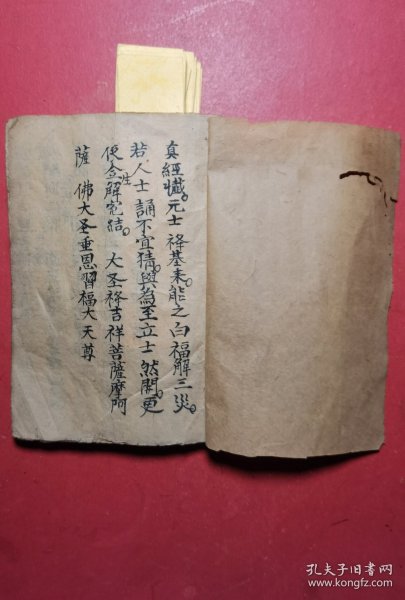 真經懺。元士 祿基來。能之白福解三災。
若人士誦不宜猜。與為至立士 然關。更
使念生解冤結。 大圣祿吉祥菩薩摩阿
薩 佛大圣重恩習福大天尊
孔夫子旧书网
www.kongfz.com